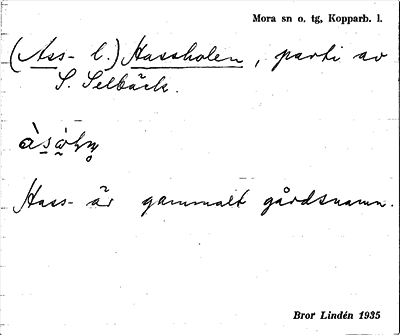 Mora sn o. tg, Kopparb. l.
(Ass- l.) Hassholen, parti av
S. Selbäck.
Hass- är gammalt gårdsnamn.
Bror Lindén 1935